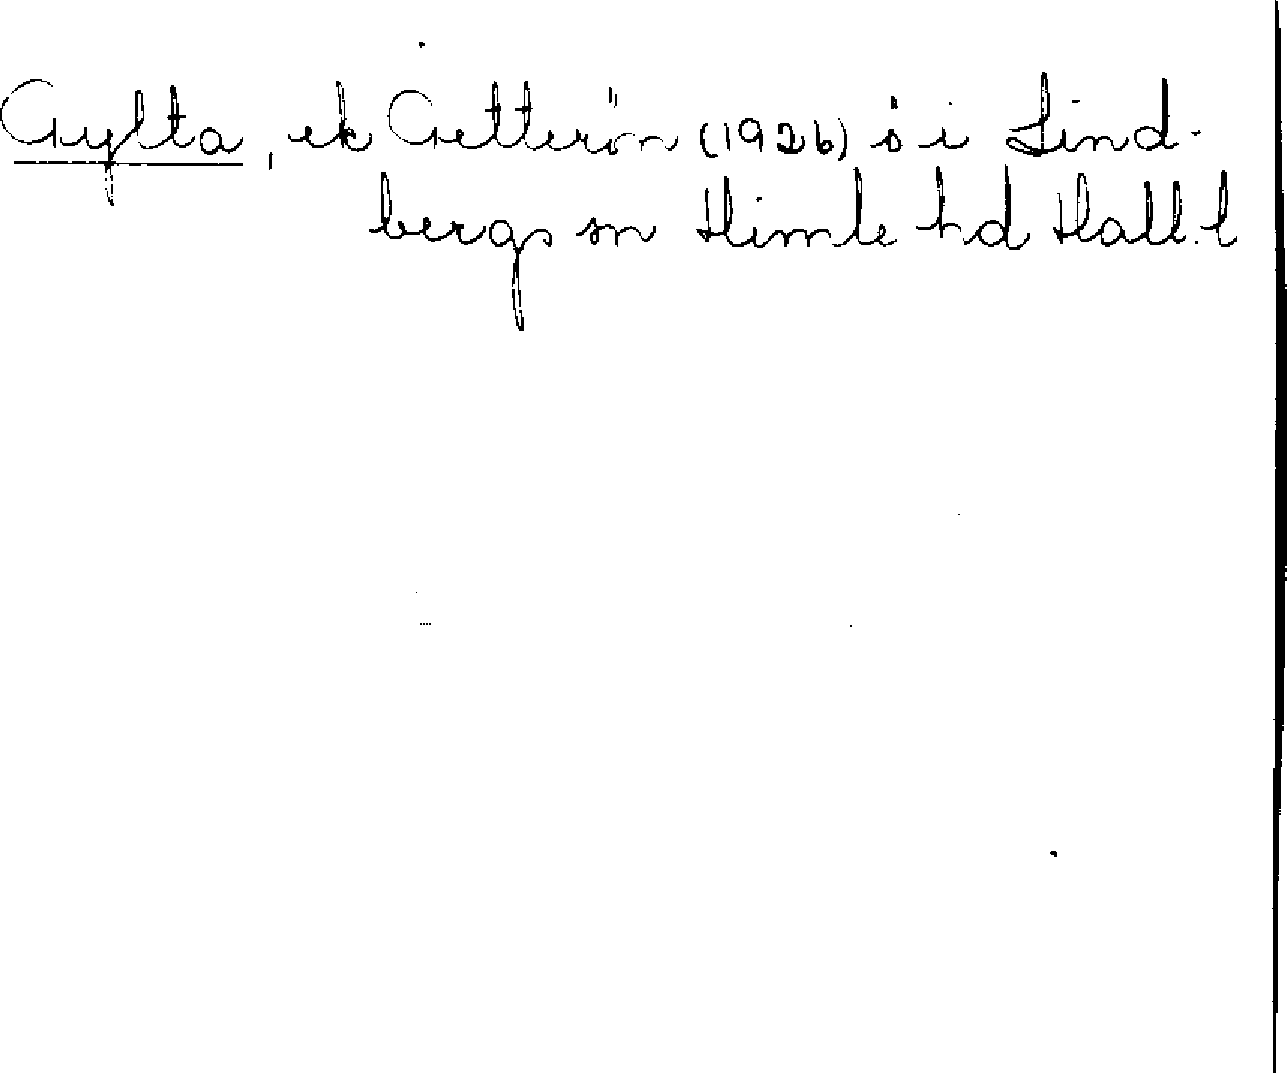 Gylta, ek Getterön (1926) ö i Lind-
bergs sn Himle hd Hall. l